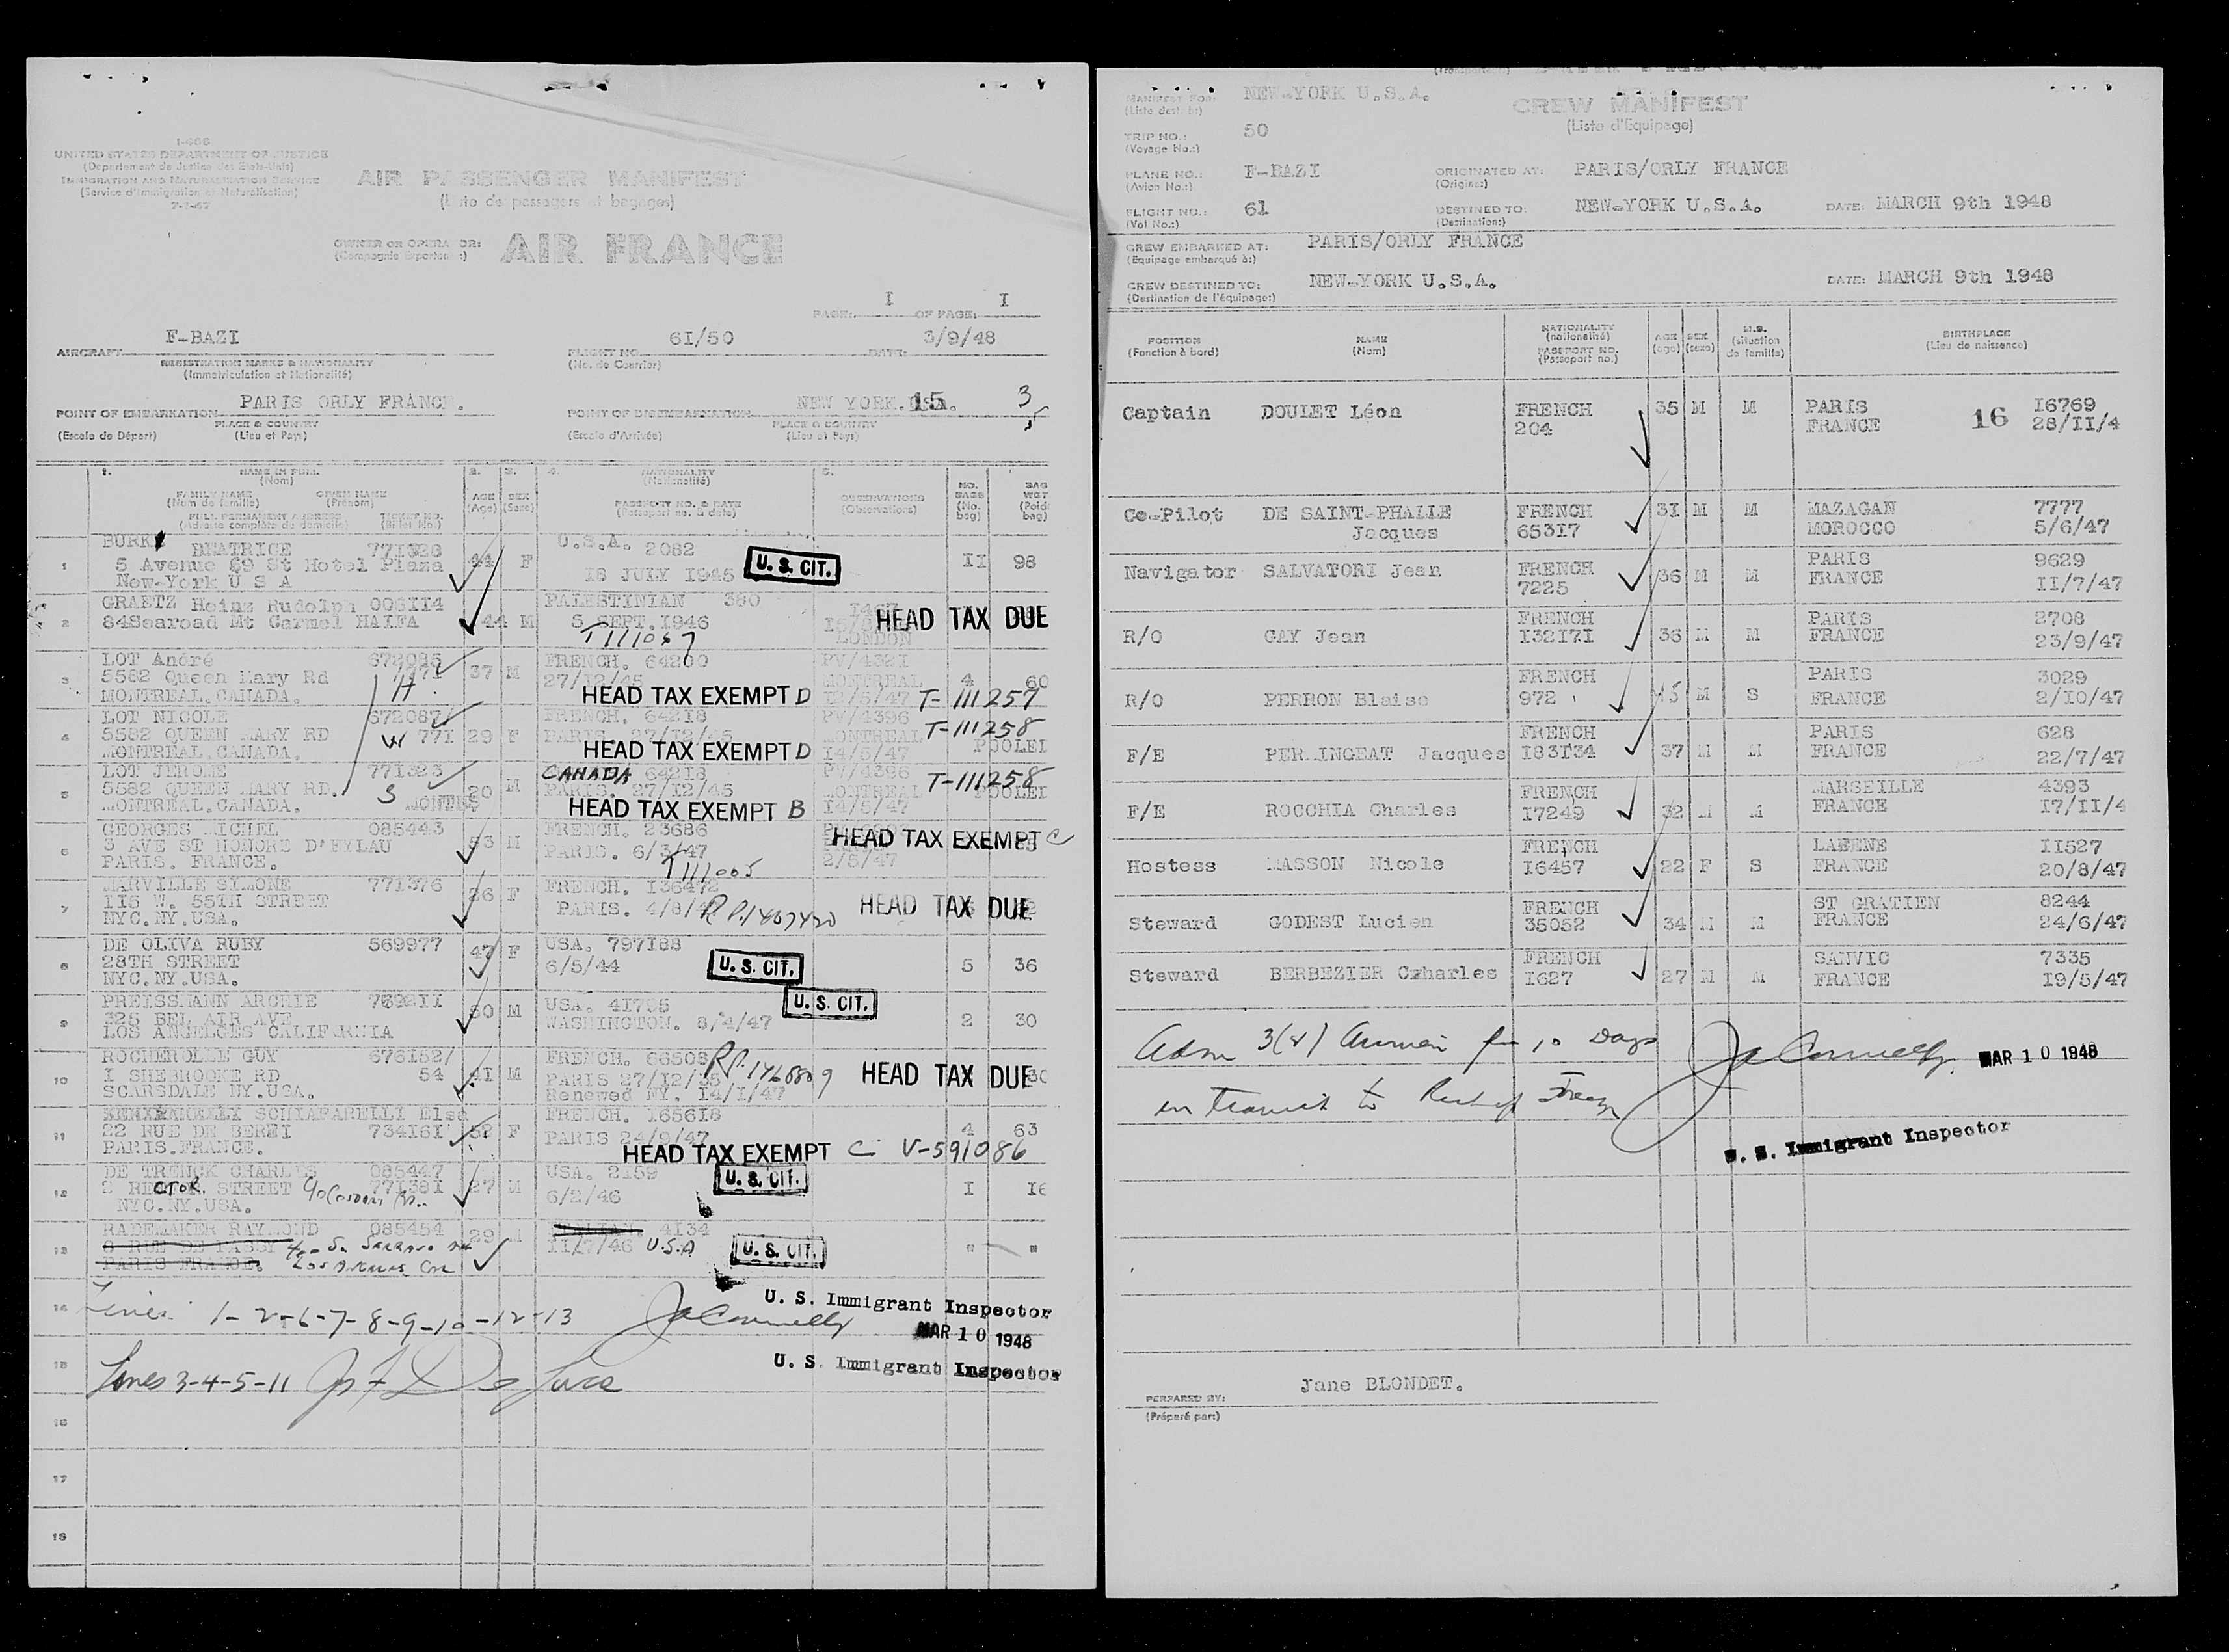 I-466
UNITED STATES DEPARTMENT OF JUSTICE
(Departement de Justice des Etats-Unis)
IMMIGRATION AND NATURALISATION SERVICE
(Service d'Immigration et Naturalisation)
AIR PASSENGER MANIFEST
(Liste de passagers et bagages)
OWNER OR OPERATOR: AIR FRANCE
PAGE: I OF PAGE: I
AIRCRAFT F-BAZI
REGISTRATION MARKS & NATIONALITY
(Immatriculation et Nationalité)
FLIGHT NO. 6I/50
(No. de Courrier)
DATE: 3/9/48
POINT OF EMBARKATION PARIS ORLY FRANCE.
PLACE & COUNTRY
(Escale de Départ) (Lieu et Pays)
POINT OF DISEMBARKATION NEW YORK. 15. 3
PLACE & COUNTRY
(Escale d'Arrivée) (Lieu et Pays)
1. NAME IN FULL (Nom)
FAMILY NAME (Nom de famille) GIVEN NAME (Prénom)
FULL PERMANENT ADDRESS (Adresse complète de domicile) TICKET NO. (Billet No.)
2. AGE (Age)
3. SEX (Sexe)
4. NATIONALITY (Nationalité)
PASSPORT NO. & DATE (Passeport no. & date)
5. OBSERVATIONS (Observations)
NO. BAGS (No. bag)
BAG WGT (Poids bag)
1 BURKE BEATRICE 771326 44 F U.S.A. 2082 II 98
5 Avenue 59 St Hotel Plaza I6 JULY I945 U. S. CIT.
New-York U S A
2 GRAETZ Heinz Rudolph 006II4 44 M PALESTINIAN 380
84Searoad Mt Carmel HAIFA 5 SEPT.I946 LONDON HEAD TAX DUE
T111067
3 LOT André 672085 37 M FRENCH. 64200 PV/432I
5582 Queen Mary Rd 27/12/45 MONTREAL 4 60
MONTREAL.CANADA. H HEAD TAX EXEMPT D 12/5/47 T-111257
4 LOT NICOLE 672087 29 F FRENCH. 64218 PV/4396 T-111258
5582 QUEEN MARY RD W 77I PARIS. 27/12/45 MONTREAL POOLED
MONTREAL.CANADA. HEAD TAX EXEMPT D 14/5/47
5 LOT JEROME 771323 20 M CANADA 64218 PV/4396 T-111258
5582 QUEEN MARY RD. S MONTHS PARIS. 27/12/45 MONTREAL POOLED
MONTREAL.CANADA. HEAD TAX EXEMPT B 14/5/47
6 GEORGES MICHEL 085443 53 M FRENCH. 23686 HEAD TAX EXEMPT C
3 AVE ST HONORE D'EYLAU PARIS. 6/3/47 2/5/47
PARIS. FRANCE. T111005
7 MARVILLE SIMONE 771376 26 F FRENCH. I36472
115 W. 55TH STREET PARIS. R.P.1407420 HEAD TAX DUE
NYC.NY.USA.
8 DE OLIVA RUBY 569977 47 F USA. 797I88
28TH STREET 6/5/44 U. S. CIT. 5 36
NYC.NY.USA.
9 PREISSMANN ARCHIE 7692II 50 M USA. 41795 U. S. CIT.
325 BEL AIR AVE WASHINGTON. 8/4/47 2 30
LOS ANGELGES CALIFORNIA
10 ROCHEROLLE GUY 676152/ 41 M FRENCH. 66508
I SHEBROOKE RD 54 PARIS 27/12/35 HEAD TAX DUE
SCARSDALE NY.USA. Renewed NY. I4/I/47
11 SCHIAPARELLI Elsa 52 F FRENCH. I656I8
22 RUE DE BERRI 734I6I PARIS 24/9/47 4 63
PARIS.FRANCE. HEAD TAX EXEMPT C V-591086
12 DE TRENCK CHARLES 085447 27 M USA. 2I59 U. S. CIT.
2 RECTOR. STREET 77I38I 6/2/46 I I6
NYC.NY.USA.
13 RADEMAKER RAYMOND 085454 29 M 4I34
8 RUE DE PASSY 11/7/46 U.S.A U. S. CIT. " "
PARIS FRANCE.
14 Lines 1-2-6-7-8-9-10-12-13 U. S. Immigrant Inspector
MAR 10 1948
15 Lines 3-4-5-11 U. S. Immigrant Inspector
16
17
18
MANIFEST FOR: NEW-YORK U.S.A.
CREW MANIFEST
(Liste d'Equipage)
TRIP NO.: 50
(Voyage No.:)
PLANE NO.: F-BAZI ORIGINATED AT: PARIS/ORLY FRANCE
(Avion No.:) (Origine:)
FLIGHT NO.: 6I DESTINED TO: NEW-YORK U.S.A. DATE: MARCH 9th 1948
(Vol No.:) (Destination:)
CREW EMBARKED AT: PARIS/ORLY FRANCE
(Equipage embarqué à:)
CREW DESTINED TO: NEW-YORK U.S.A. DATE: MARCH 9th 1948
(Destination de l'équipage:)
POSITION (Fonction à bord) NAME (Nom) NATIONALITY (nationalité) PASSPORT NO. (Passeport no.) AGE (age) SEX (sexe) M.S. (situation de famille) BIRTHPLACE (Lieu de naissance)
Captain DOUIET Léon FRENCH 35 M M PARIS 16 I6769
204 FRANCE 28/II/4
Co-Pilot DE SAINT-PHALLE FRENCH 3I M M MAZAGAN 7777
Jacques 653I7 MOROCCO 5/6/47
Navigator SALVATORI Jean FRENCH 36 M M PARIS 9629
7225 FRANCE II/7/47
R/O GAY Jean FRENCH 36 M M PARIS 2708
I32I7I FRANCE 23/9/47
R/O PERRON Blaise FRENCH M S PARIS 3029
972 FRANCE 2/IO/47
F/E Jacques FRENCH 37 M M PARIS 628
I83I34 22/7/47
F/E ROCCHIA Charles FRENCH 32 M M MARSEILLE 4393
I7249 FRANCE I7/II/4
Hostess MASSON Nicole FRENCH 22 F S LABENE II527
I6457 FRANCE 20/8/47
Steward GODEST Lucien FRENCH 34 M M ST GRATIEN 8244
35052 FRANCE 24/6/47
Steward BERBEZIER Czharles FRENCH 27 M M SANVIC 7335
I627 FRANCE I9/5/47
Adm 3(4) Airmen for 10 Days MAR 10 1948
in Transit to
U. S. Immigrant Inspector
PERPARED BY: Jane BLONDET.
(Préparé par:)